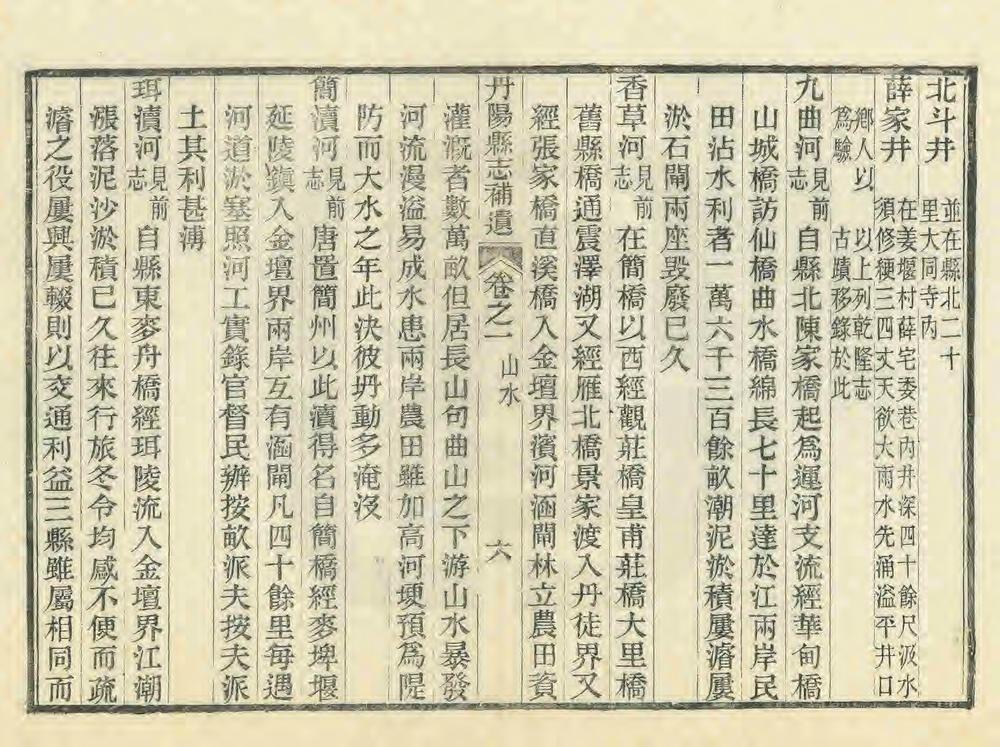 北斗井並在縣北二十里大同寺內
薛家井在姜堰村薛宅委巷內井深四十餘尺汲水須修綆三四丈天欲大雨水先涌溢平井口
鄉人以爲驗 以上列乾隆志古蹟移錄於此
九曲河見前志 自縣北陳家橋起爲運河支流經華甸橋
山城橋訪仙橋曲水橋綿長七十里達於江兩岸民
田沾水利者一萬六千三百餘畝潮泥淤積屢濬屢
淤石閘兩座毀廢已久
香草河見前志 在簡橋以西經觀莊橋皇甫莊橋大里橋
舊縣橋通震澤湖又經雁北橋景家渡入丹徒界又
經張家橋直溪橋入金壇界濱河涵閘林立農田資
丹陽縣志補遺 卷之二 山水 六
灌溉者數萬畝但居長山句曲山之下游山水暴發
河流漫溢易成水患兩岸農田雖加高河埂預爲隄
防而大水之年此決彼坍動多淹沒
簡瀆河見前志 唐置簡州以此瀆得名自簡橋經麥埤堰
延陵鎭入金壇界兩岸互有涵閘凡四十餘里每遇
河道淤塞照河工實錄官督民辦按畝派夫按夫派
土其利甚溥
珥瀆河見前志 自縣東麥舟橋經珥陵流入金壇界江潮
漲落泥沙淤積已久往來行旅冬令均感不便而疏
濬之役屢興屢輟則以交通利益三縣雖屬相同而